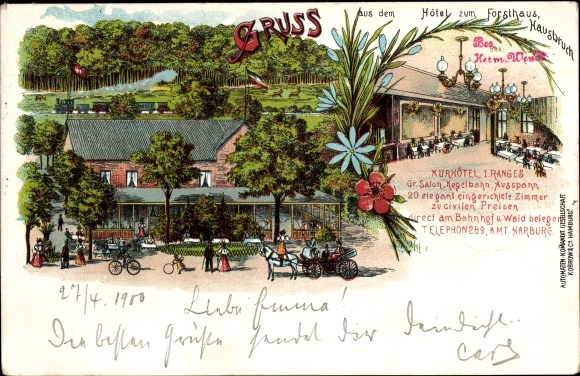 GRUSS aus dem Hôtel zum Forsthaus,
Hausbruch
Bes.
Herm. Wendt
KURHÔTEL I. RANGES
Gr. Salon, Kegelbahn, Ausspann
20 elegant eingerichtete Zimmer
zu civilen Preisen
direct am Bahnhof u Wald belegen
TELEPHON 289, AMT HARBURG.
AUTOMATEN-KOMMANDIT-GESELLSCHAFT
KOBROW & Co HAMBURG
27/4. 1900
Liebe Emma!
Die besten Grüße sendet Dir
Carl